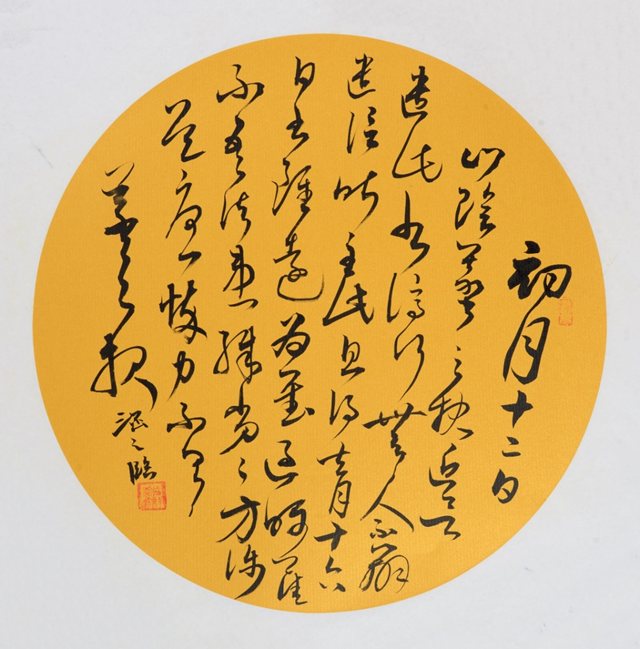 初月十二日
山陰羲之報近
遣此書停行無人不辦
遣信昨至此且得去月十六
日書雖遠為慰過囑
不吾諸患殊劣々方涉
道憂悴力不具
羲之報
之臨